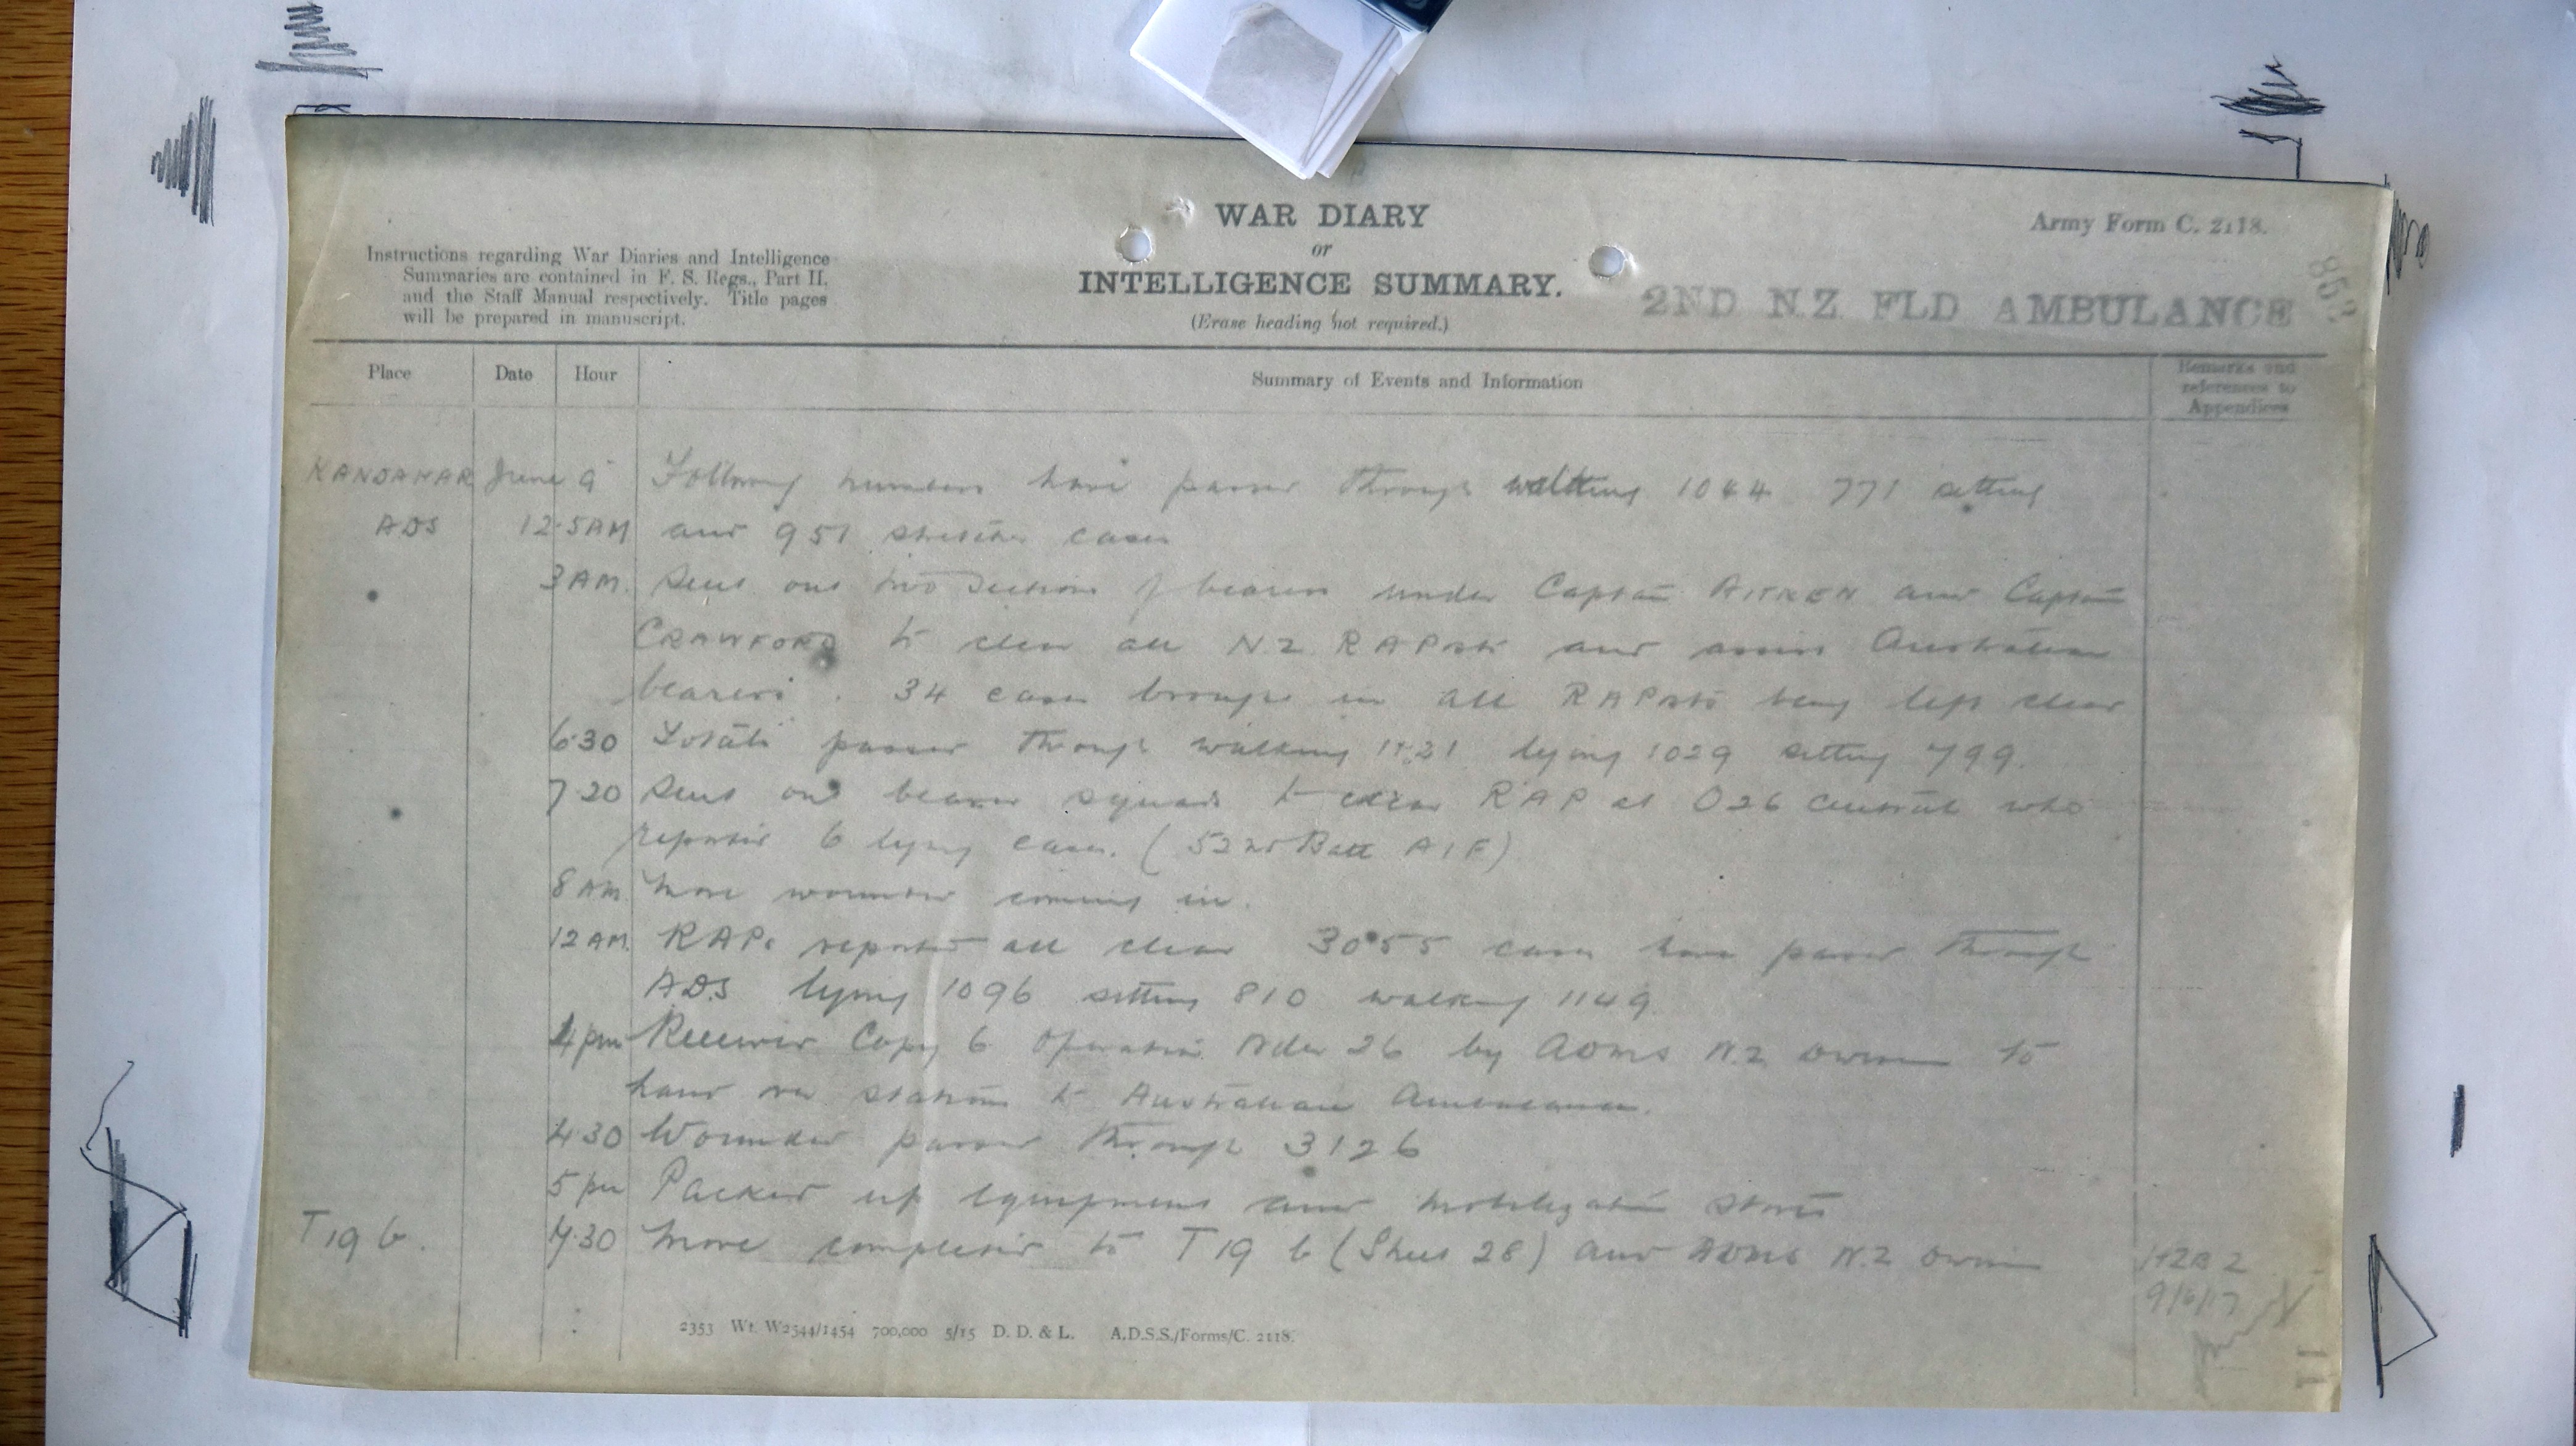 WAR DIARY
or
INTELLIGENCE SUMMARY.
(Erase heading not required.)
Army Form C. 2118.
Instructions regarding War Diaries and Intelligence
Summaries are contained in F. S. Regs., Part II.
and the Staff Manual respectively. Title pages
will be prepared in manuscript.
2ND N.Z. FLD AMBULANCE
Place Date Hour Summary of Events and Information Remarks and references to Appendices
KANDAHAR June 9 Following numbers have passed through walking 1044 771 sitting
ADS 12.5AM and 951 stretcher cases
3AM. Sent out two sections of bearers under Captain AITKEN and Captain
CRAWFORD to clear all N.Z. RAPosts and assist Australian
bearers. 34 cases brought in all RAPosts being left clear
6.30 Totals passed through walking 1121 lying 1029 sitting 799.
7.20 Sent out bearer squads to clear RAP at O26 central who
reported 6 lying cases. (52nd Batt AIF)
8AM. More wounded coming in.
12AM. RAPs reported all clear 3055 cases have passed through
ADS lying 1096 sitting 810 walking 1149.
4pm Received Copy 6 Operation Order 26 by ADMS N.Z. Divn to
hand over station to Australian Ambulance.
4.30 Wounded passed through 3126
5pm Packed up equipment and mobilization stores
T19 b. 7.30 Move completed to T19 b (Sheet 28) and ADMS N.Z. Divn
9/6/17
2353 Wt. W2544/1454 700,000 5/15 D. D. & L. A.D.S.S./Forms/C. 2118.
11